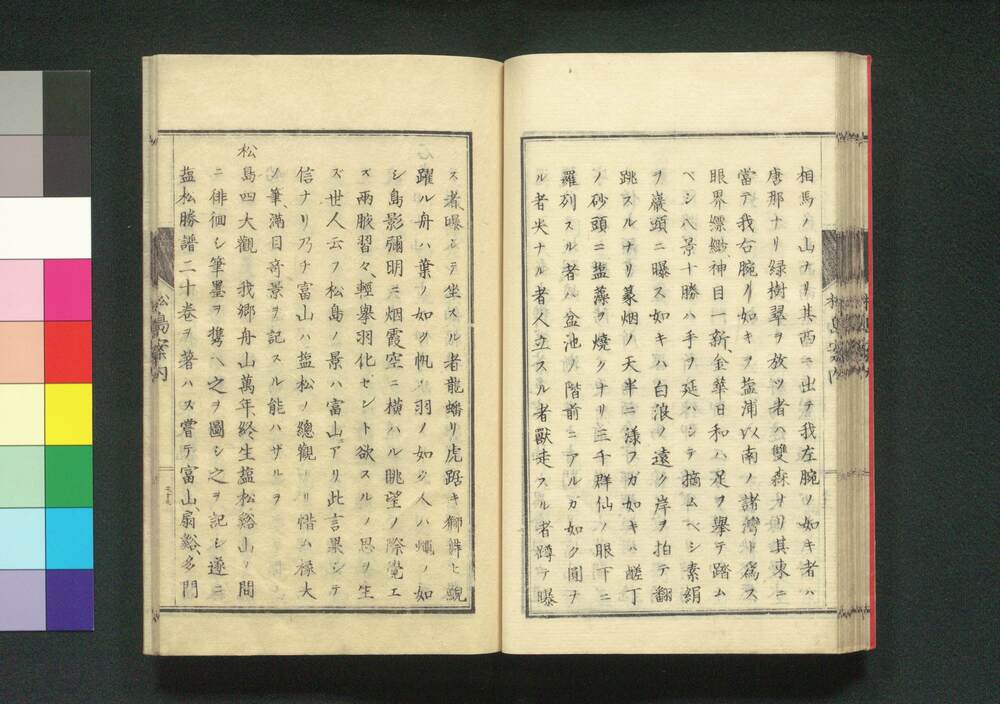 相馬ノ山ナリ其西ニ出テ我左腕ノ如キ者ハ
唐那ナリ綠樹翠ヲ放ツ者ハ雙森ナリ其東ニ
當テ我右腕ノ如キヲ盐浦以南ノ諸灣ト為ス
眼界縹緲、神目一新、金華日和ハ足ヲ擧テ踏ム
ベシ八景十勝ハ手ヲ延ハシテ摘ムベシ素絹
ヲ巖頭ニ曝ス如キハ白浪ノ遠ク岸ヲ拍テ翻
跳スルナリ篆烟ノ天半ニ漾フガ如キハ醝丁
ノ砂頭ニ盐藻ヲ燒クナリ三千群仙ノ眼下ニ
羅列スル者ハ盆池ノ階前ニアルガ如ク圓ヲ
ル者尖ナル者人立スル者獸走スル者蹲テ曝
ス者曝シテ坐スル者龍蟠リ虎踞キ獅
躍ル舟ハ葉ノ如ク帆ハ羽ノ如ク人ハ蠅ノ如
シ島影彌明ニ烟霞空ニ橫ハル眺望ノ際覺エ
ズ兩腋習々、輕擧羽化セント欲スルノ思ヲ生
ズ世人云フ松島ノ景ハ富山ニアリ此言果シテ
信ナリ乃チ富山ハ盐松ノ總觀ナリ惜ム椽大
ノ筆、滿目奇景ヲ記スル能ハザルヲ
松島四大觀 我鄉舟山萬年、終生盐松谿山ノ間
ニ徘徊シ筆墨ヲ携ヘ之ヲ圖シ之ヲ記シ遂ニ
盐松勝譜二十卷ヲ著ハス嘗テ富山、扇谿、多門
松島案內